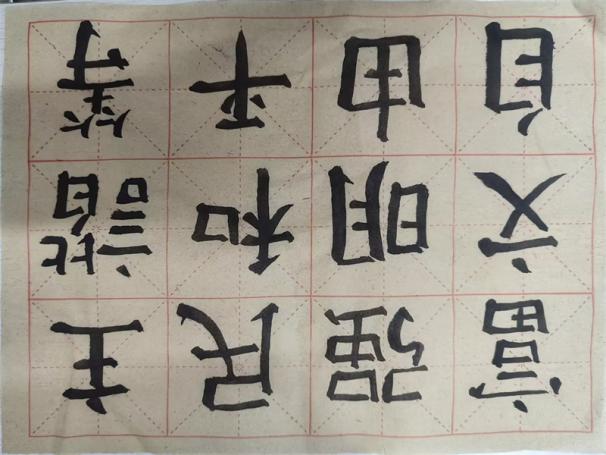 富强民主
文明和諧
自由平等